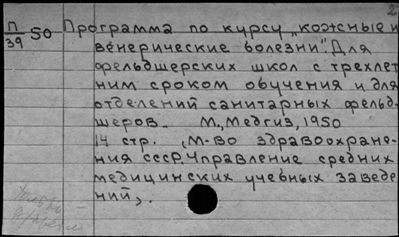 2
П/39 50 Программа по курсу „кожные и
венерические болезни". Для
фельдшерских школ с трехлет
ним сроком обучения и для
отделений санитарных фельд-
шеров. М., Медгиз, 1950
14 стр. (М-во здравоохране-
ния СССР. Управление средних
медицинских учебных заведе
ний).